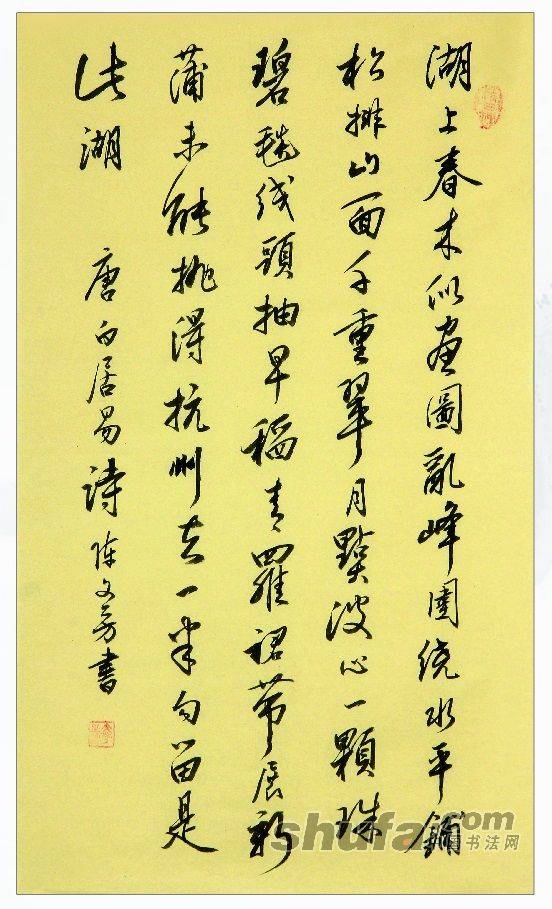 湖上春来似畫圖亂峰圍繞水平鋪
松排山面千重翠月點波心一顆珠
碧毯线頭抽早稻青羅裙帶展新
蒲未能抛得杭州去一半勾留是
此湖 唐白居易詩 陈文芳書
shufa.com
书法网